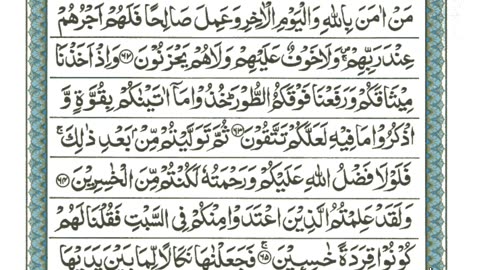 مَنْ اٰمَنَ بِاللّٰهِ وَالْيَوْمِ الْاٰخِرِ وَعَمِلَ صَالِحًا فَلَهُمْ اَجْرُهُمْ
عِنْدَ رَبِّهِمْ ۚ وَلَا خَوْفٌ عَلَيْهِمْ وَلَا هُمْ يَحْزَنُوْنَ ﴿۶۲﴾ وَاِذْ اَخَذْنَا
مِيْثَاقَكُمْ وَرَفَعْنَا فَوْقَكُمُ الطُّوْرَ ؕ خُذُوْا مَاۤ اٰتَيْنٰكُمْ بِقُوَّةٍ وَّ
اذْكُرُوْا مَا فِيْهِ لَعَلَّكُمْ تَتَّقُوْنَ ﴿۶۳﴾ ثُمَّ تَوَلَّيْتُمْ مِّنْۢ بَعْدِ ذٰلِكَ ۚ
فَلَوْلَا فَضْلُ اللّٰهِ عَلَيْكُمْ وَرَحْمَتُهٗ لَكُنْتُمْ مِّنَ الْخٰسِرِيْنَ ﴿۶۴﴾
وَلَقَدْ عَلِمْتُمُ الَّذِيْنَ اعْتَدَوْا مِنْكُمْ فِى السَّبْتِ فَقُلْنَا لَهُمْ
كُوْنُوْا قِرَدَةً خٰسِـِٕيْنَ ۚ ﴿۶۵﴾ فَجَعَلْنٰهَا نَكَالًا لِّمَا بَيْنَ يَدَيْهَا